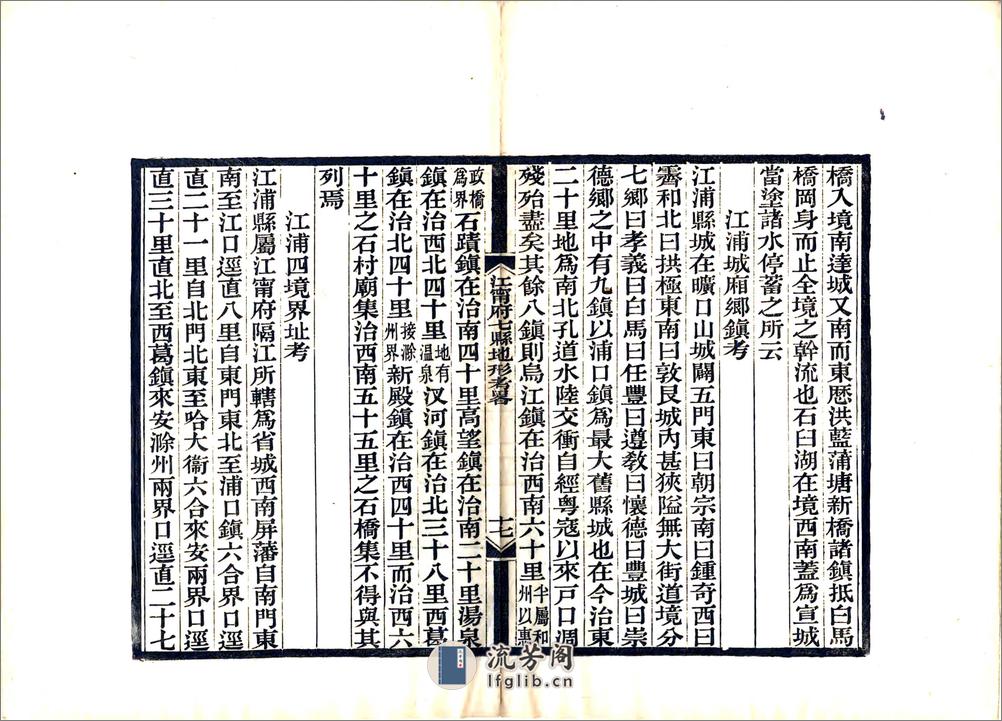 橋入境南達城又南而東歷洪藍蒲塘新橋諸鎮抵白馬
橋岡身而止全境之幹流也石臼湖在境西南蓋爲宣城
當塗諸水停蓄之所云
江浦城廂鄉鎮考
江浦縣城在曠口山城闢五門東曰朝宗南曰鍾奇西曰
霽和北曰拱極東南曰敦艮城內甚狹隘無大街道境分
七鄉曰孝義曰白馬曰任豐曰遵敎曰懷德曰豐城曰崇
德鄉之中有九鎮以浦口鎮爲最大舊縣城也在今治東
二十里地爲南北孔道水陸交衝自經粵寇以來戸口凋
殘殆盡矣其餘八鎮則烏江鎮在治西南六十里半屬和州以惠
江甯府七縣地形考畧
十七
政橋爲界石蹟鎮在治南四十里高望鎮在治南二十里湯泉
鎮在治西北四十里地有溫泉汊河鎮在治北三十八里西葛
鎮在治北四十里接滁州界新殿鎮在治西四十里而治西六
十里之石村廟集治西南五十五里之石橋集不得與其
列焉
江浦四境界址考
江浦縣屬江甯府隔江所轄爲省城西南屏藩自南門東
南至江口逕直八里自東門東北至浦口鎮六合界口逕
直二十一里自北門北東至哈大衞六合來安兩界口逕
直三十里直北至西葛鎮來安滁州兩界口逕直二十七
流芳阁
lfglib.cn